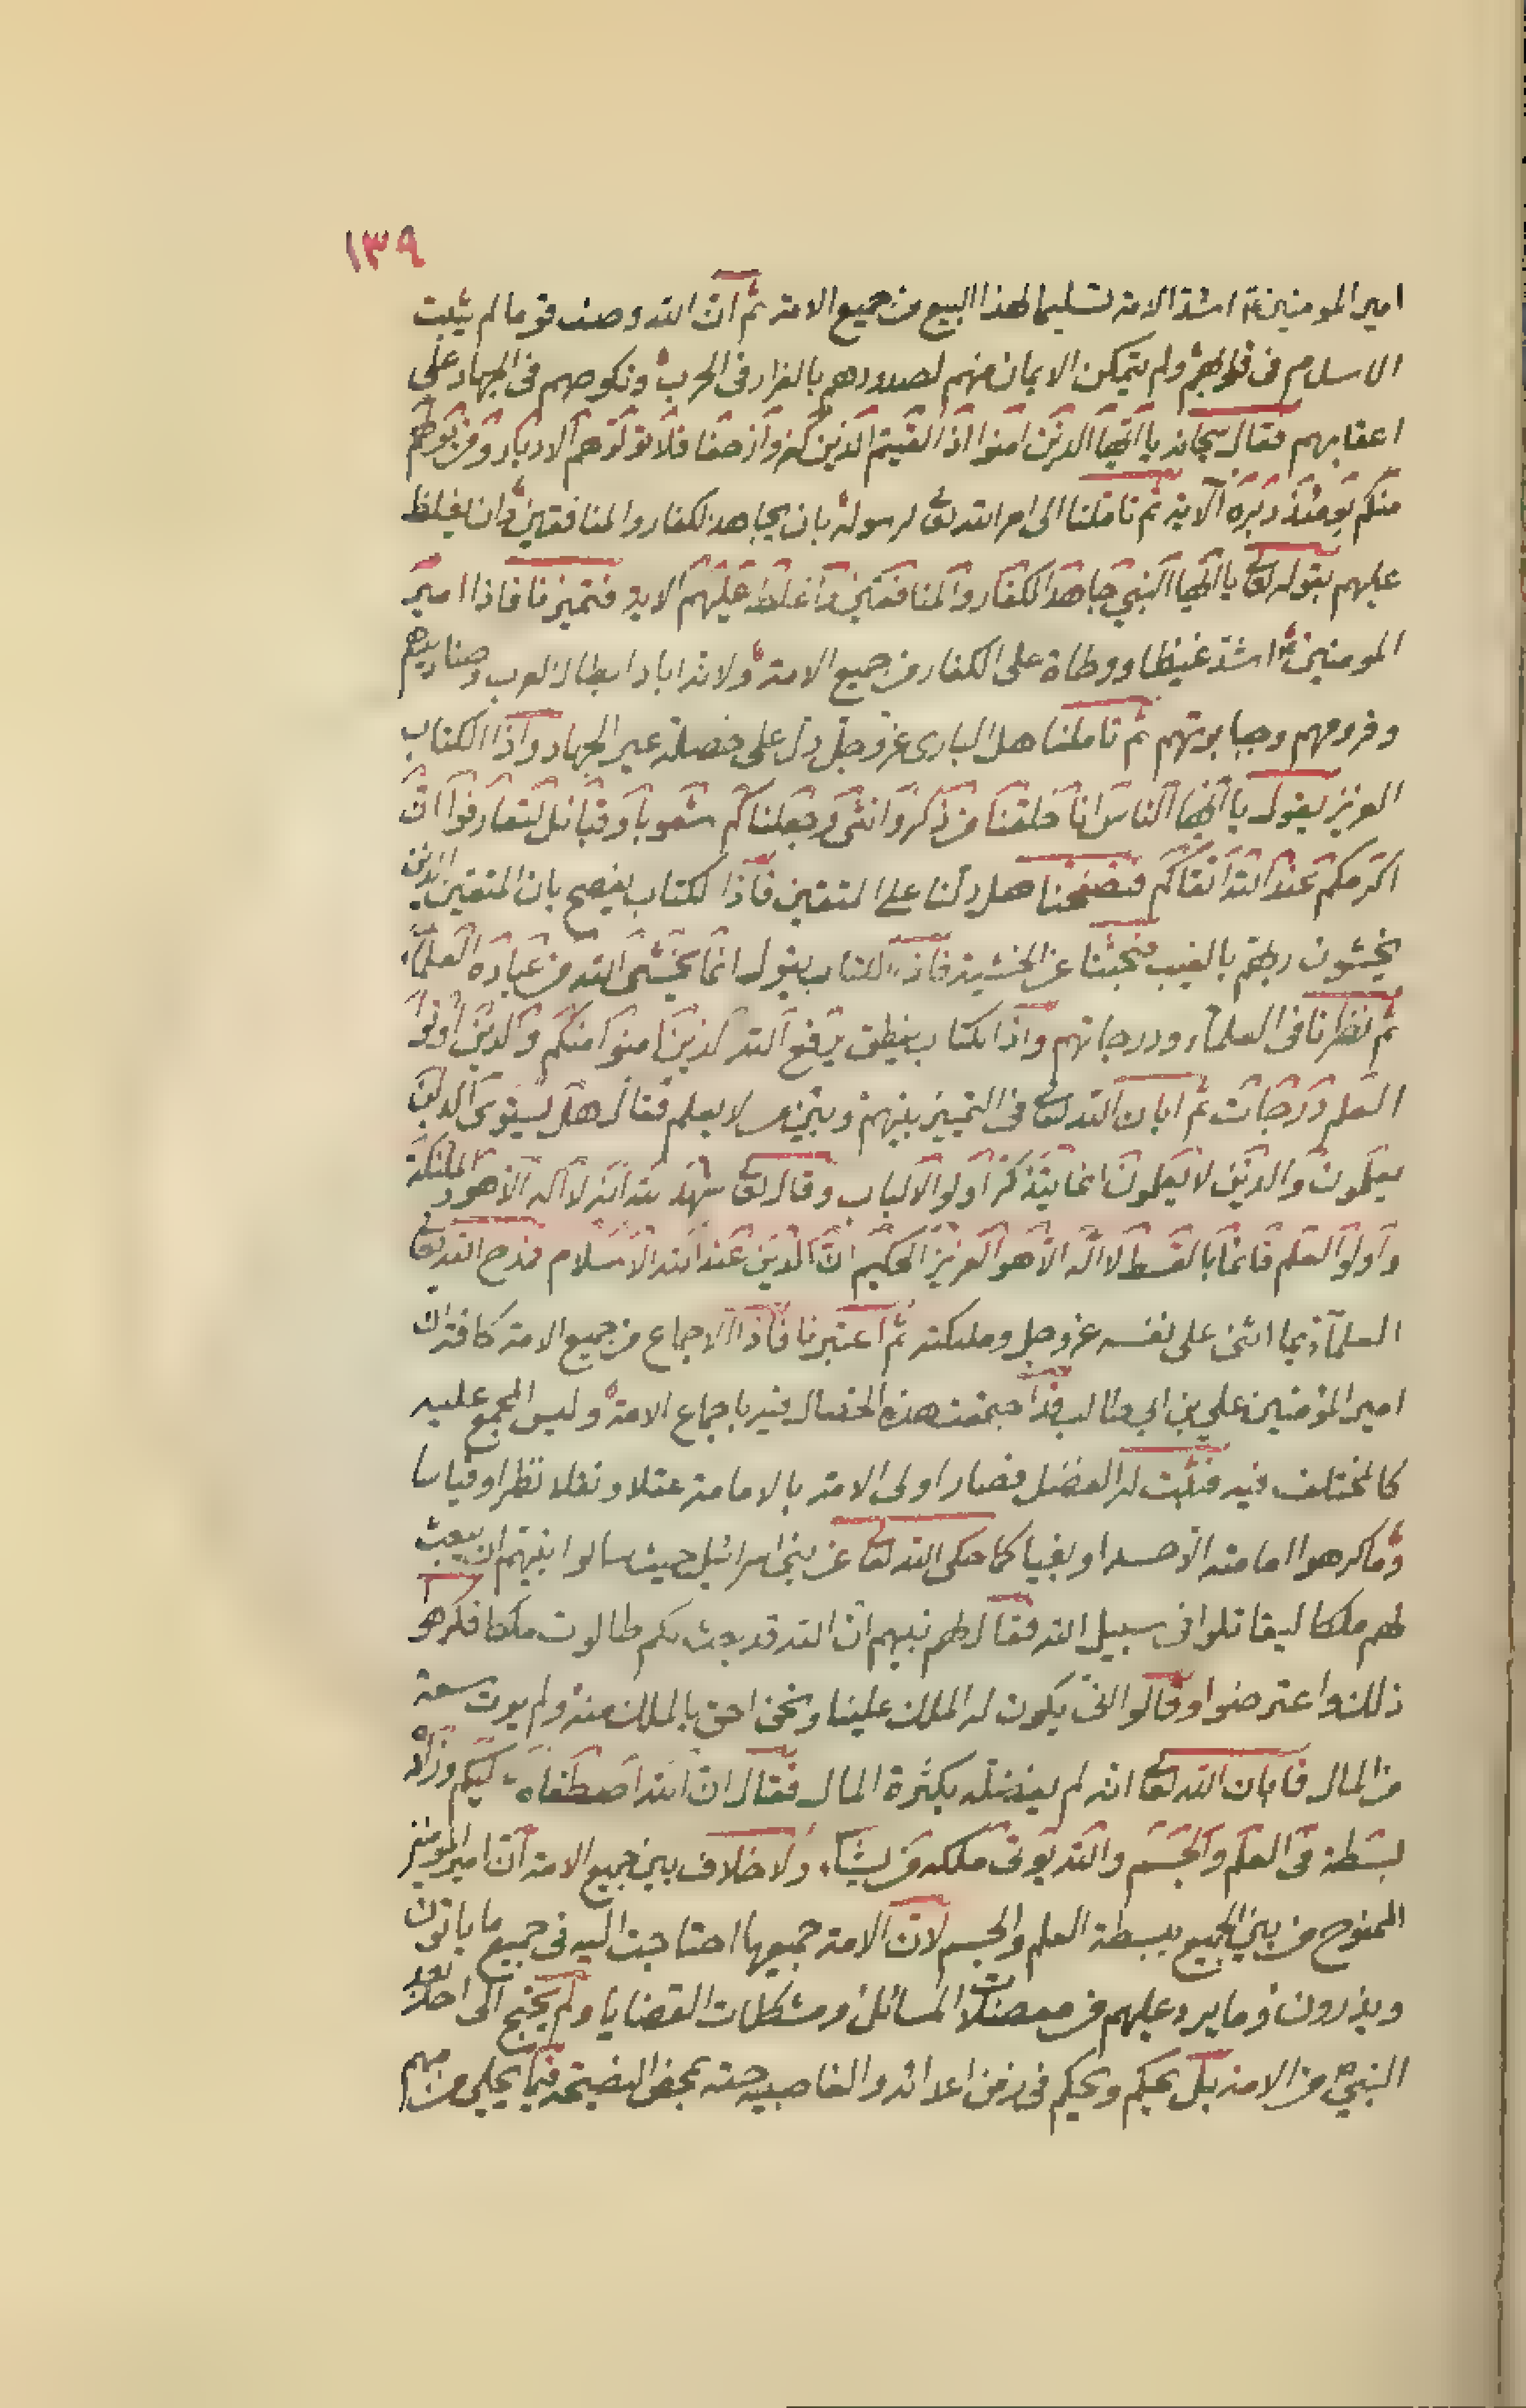 ١٣٩
امير المومنين ع اشد الامة تسليما لهذا البيع من جميع الامة ثم ان الله وصف قوما لم يثبت
الاسلام في قلوبهم ولم يتمكن الايمان منهم لصدورهم بالفرار في الحرب ونكوصهم في الجهاد على
اعقابهم فقال سبحانه يا ايها الذين امنوا اذا لقيتم الذين كفروا زحفا فلا تولوهم الادبار ومن يولهم
منكم يومئذ دبره الاية ثم تاملنا الى امر الله تعالى لرسوله بان يجاهد الكفار والمنافقين وان يغلظ
عليهم بقوله تعالى يا ايها النبي جاهد الكفار والمنافقين واغلظ عليهم الاية فتميزنا فاذا امير
المومنين ع اشد غيظا ووطاة على الكفار من جميع الامة ولانه اباد ابطال العرب وصناديدهم
وقرومهم وجبابرتهم ثم تاملنا هل الباري عز وجل دل على خصلة غير الجهاد واذا الكتاب
العزيز يقول يا ايها الناس انا خلقنا من ذكر وانثى وجعلناكم شعوبا وقبائل لتعارفوا ان
اكرمكم عند الله اتقاكم فتصفحنا هل دلنا على المتقين فاذا الكتاب يفصح بان المتقين الذين
يخشون ربهم بالغيب فبحثنا عن الخشية فاذا الكتاب يقول انما يخشى الله من عباده العلماء
ثم نظرنا في العلماء ودرجاتهم واذا الكتاب ينطق يرفع الله الذين امنوا منكم والذين اوتوا
العلم درجات ثم ابان الله تعالى في التمييز بينهم وبين من لا يعلم فقال هل يستوي الذين
يعلمون والذين لا يعلمون انما يتذكر اولو الالباب وقال تعالى شهد الله انه لا اله الا هو والملئكة
واولو العلم قائما بالقسط لا اله الا هو العزيز الحكيم ان الدين عند الله الاسلام فمدح الله تعالى
العلماء بما اثنى على نفسه عز وجل وملئكته ثم اعتبرنا فاذا الاجماع من جميع الامة كافة ان
امير المؤمنين علي بن ابي طالب قد اجتمعت هذه الخصال فيه باجماع الامة وليس المجمع عليه
كالمختلف فيه فثبت له الفضل فصار اولى الامة بالامامة عقلا ونقلا نظرا وقياسا
وما كرهوا امامته الا حسدا وبغيا كما حكى الله تعالى عن بني اسرائيل حيث سالوا نبيهم ان يبعث
لهم ملكا ليقاتلوا في سبيل الله فقال لهم نبيهم ان الله قد بعث لكم طالوت ملكا فكرهوا
ذلك واعترضوا وقالوا انى يكون له الملك علينا ونحن احق بالملك منه ولم يوت سعة
من المال فابان الله تعالى انه لم يفضله بكثرة المال فقال ان الله اصطفاه عليكم وزاده
بسطة في العلم والجسم والله يوتي ملكه من يشاء ولا خلاف بين جميع الامة ان امير المومنين
الممنوح من بين الجميع ببسطة العلم والجسم لان الامة جميعها احتاجت اليه في جميع ما ياتون
ويذرون وما يرد عليهم من معضلات المسائل ومشكلات القضايا ولم يحتج الى احد بعد
النبي ص من الامة بل يحكم ويحكم في زمن اعدائه والغاصبين حقه بمحض النصيحة فيما يجلي من مهم